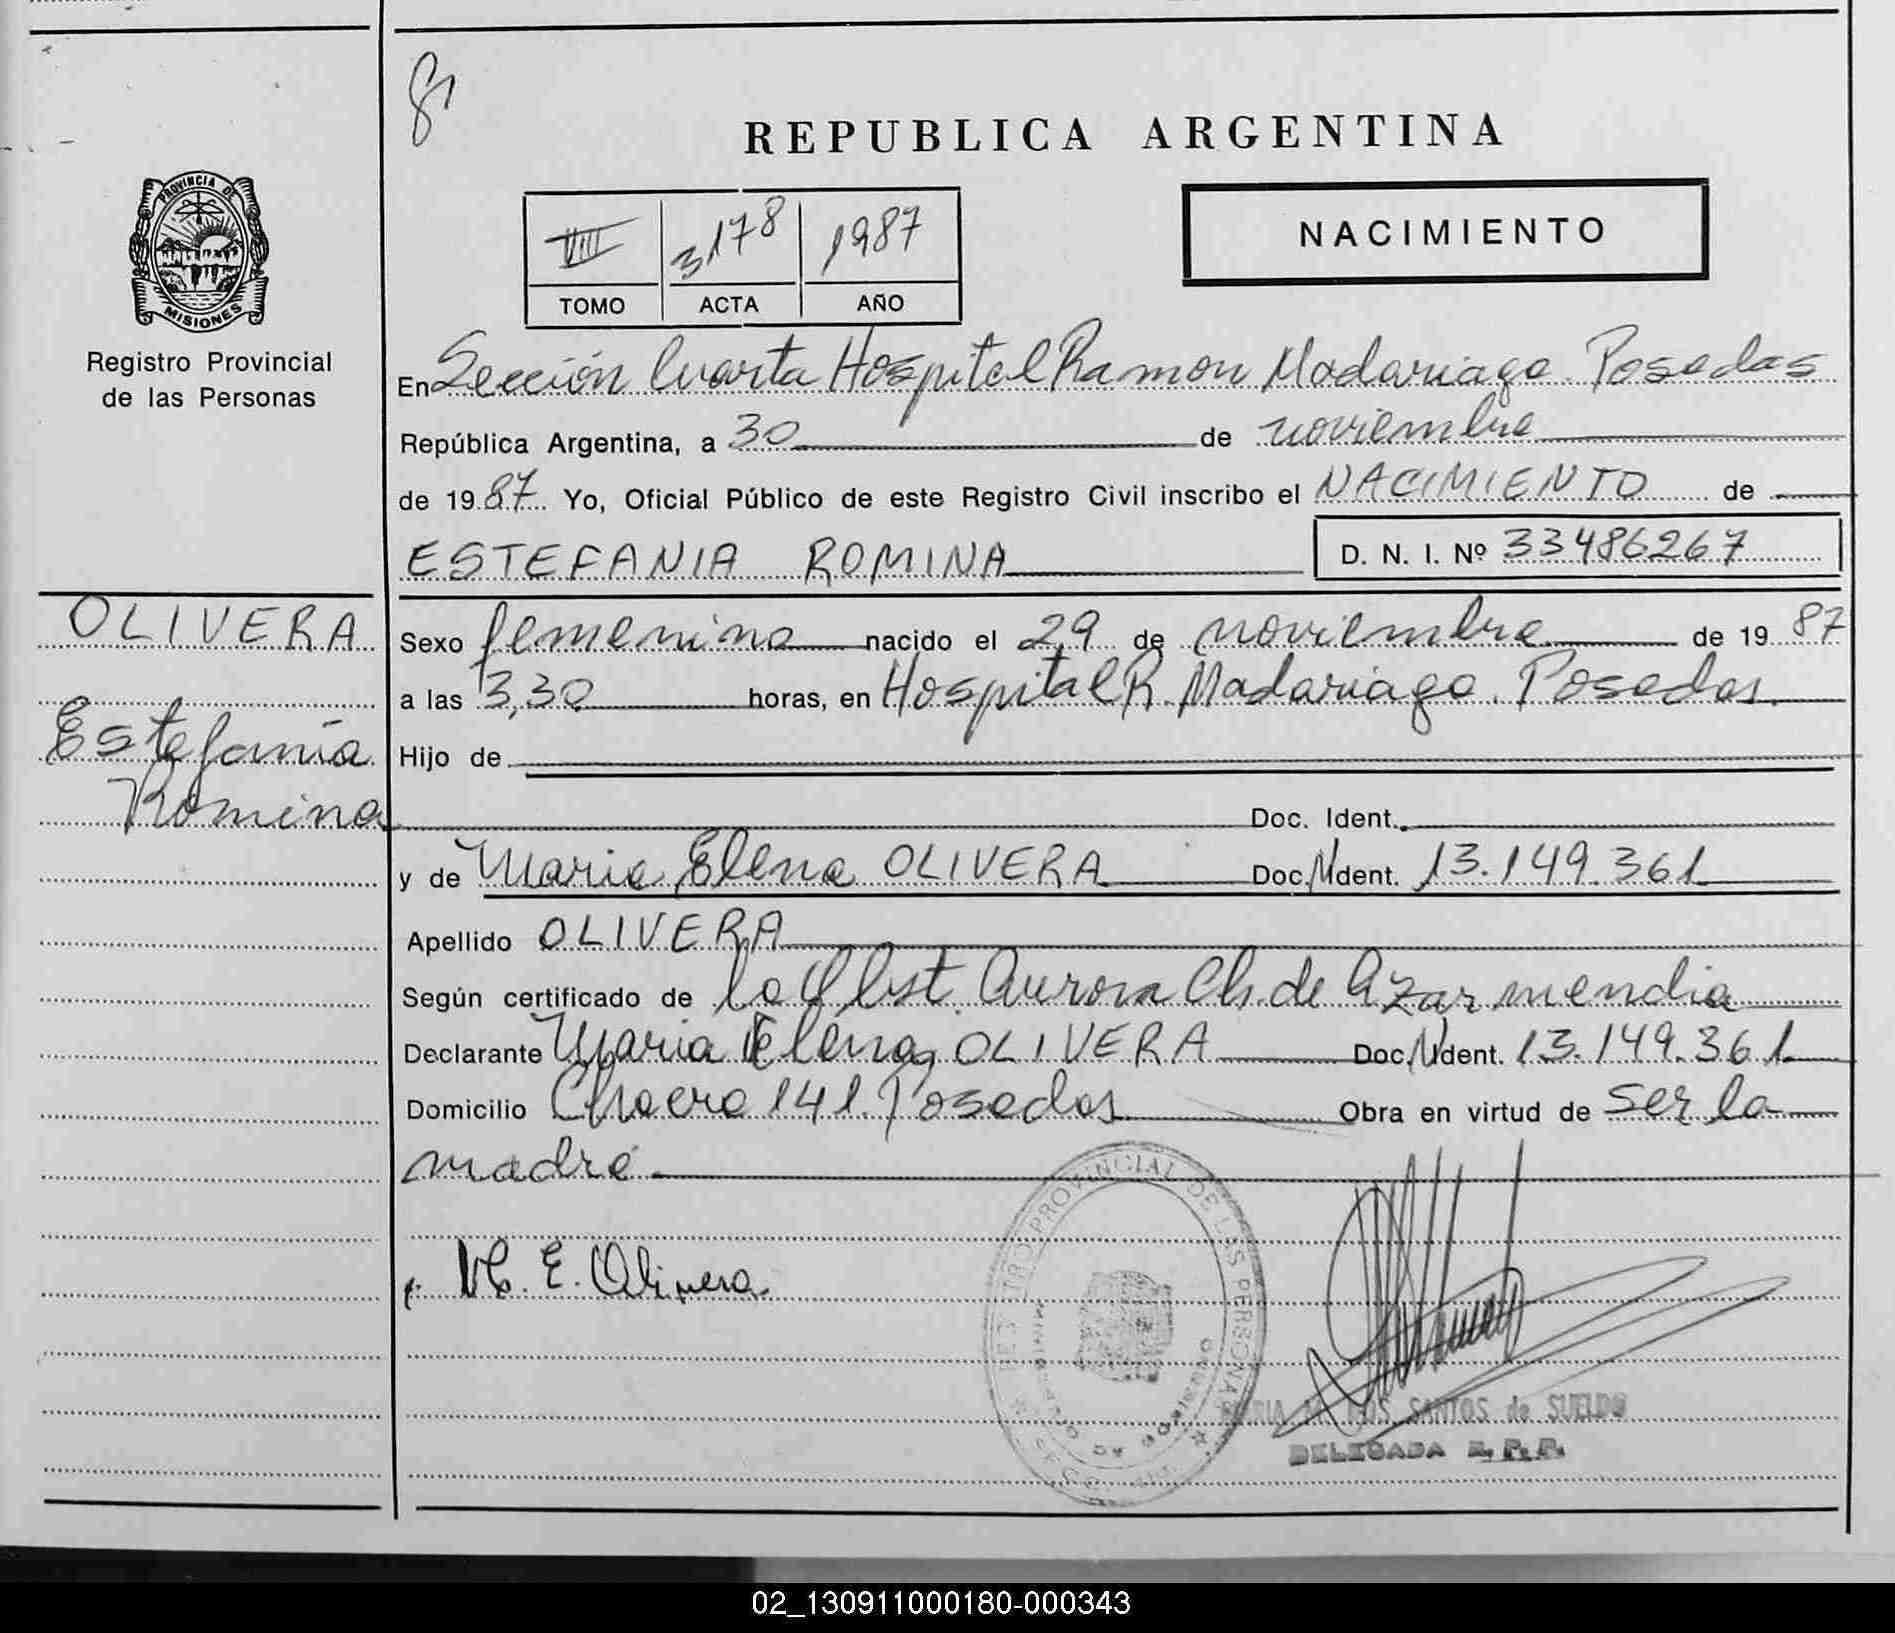 REPUBLICA ARGENTINA
PROVINCIA DE
MISIONES
Registro Provincial
de las Personas
VIII 3178 1987
TOMO ACTA AÑO
NACIMIENTO
En Sección Cuarta Hospital Ramon Madariaga. Posadas
República Argentina, a 30 de noviembre
de 1987 Yo, Oficial Público de este Registro Civil inscribo el NACIMIENTO de
ESTEFANIA ROMINA D. N. I. Nº 33486267
OLIVERA
Estefania
Romina
Sexo femenino nacido el 29 de noviembre de 1987
a las 3,30 horas, en Hospital R. Madariaga. Posadas.
Hijo de
Doc. Ident.
y de Maria Elena OLIVERA Doc. Ident. 13.149.361
Apellido OLIVERA
Según certificado de la Obst. Aurora Ch. de Azarmendia
Declarante Maria Elena OLIVERA Doc. Ident. 13.149.361
Domicilio Chacra 141. Posadas Obra en virtud de ser la
madre
M. E. Olivera
REGISTRO PROVINCIAL DE LAS PERSONAS
MINISTERIO DE GOBIERNO
SANTOS de SUELDO
DELEGADA R. P. P.
02_130911000180-000343